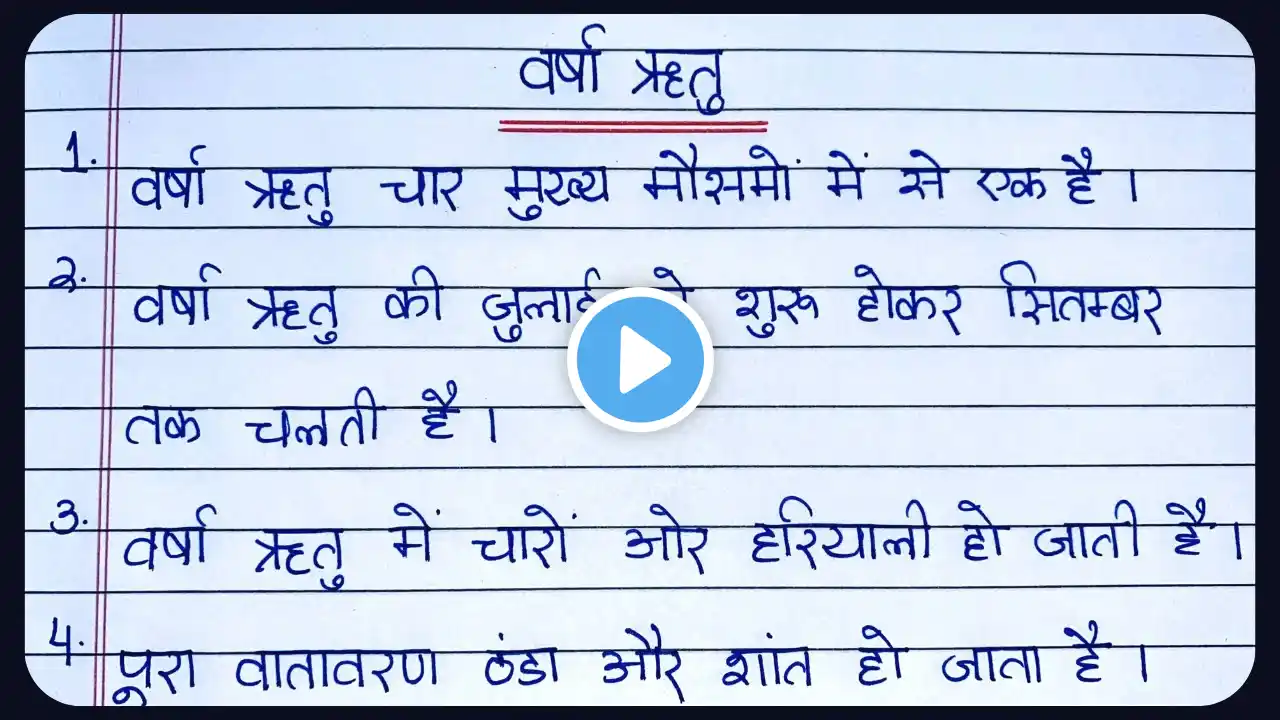 वर्षा ऋतु
1. वर्षा ऋतु चार मुख्य मौसमों में से एक है।
२. वर्षा ऋतु की जुलाई शुरू होकर सितम्बर
तक चलती है।
3. वर्षा ऋतु में चारों ओर हरियाली हो जाती है।
4. पूरा वातावरण ठंडा और शांत हो जाता है।